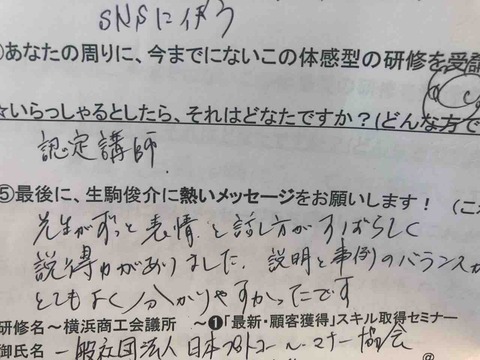 SNSに使う
あなたの周りに、今までにないこの体感型の研修を受講
☆いらっしゃるとしたら、それはどなたですか？(どんな方で
認定講師
⑤最後に、生駒俊介に熱いメッセージをお願いします！ (これ
先生がずっと表情と話し方がすばらしく
説得力がありました。説明と事例のバランスが
とてもよく分かりやすかったです
研修名～横浜商工会議所 ～❶「最新・顧客獲得」スキル取得セミナー
御氏名 一般社団法人 日本プロトコール・マナー協会